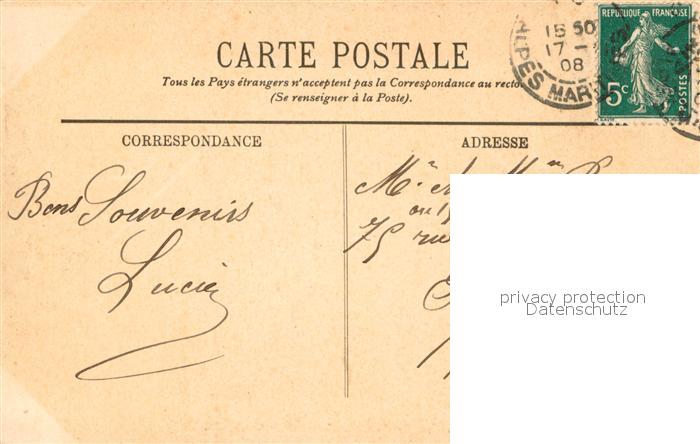 CARTE POSTALE
Tous les Pays étrangers n'acceptent pas la Correspondance au recto
(Se renseigner à la Poste).
CORRESPONDANCE
ADRESSE
Bons Souvenirs
Lucien
Mr
75 rue
RÉPUBLIQUE FRANÇAISE
5c
POSTES
15 50
17 -
08
ALPES MAR
privacy protection
Datenschutz